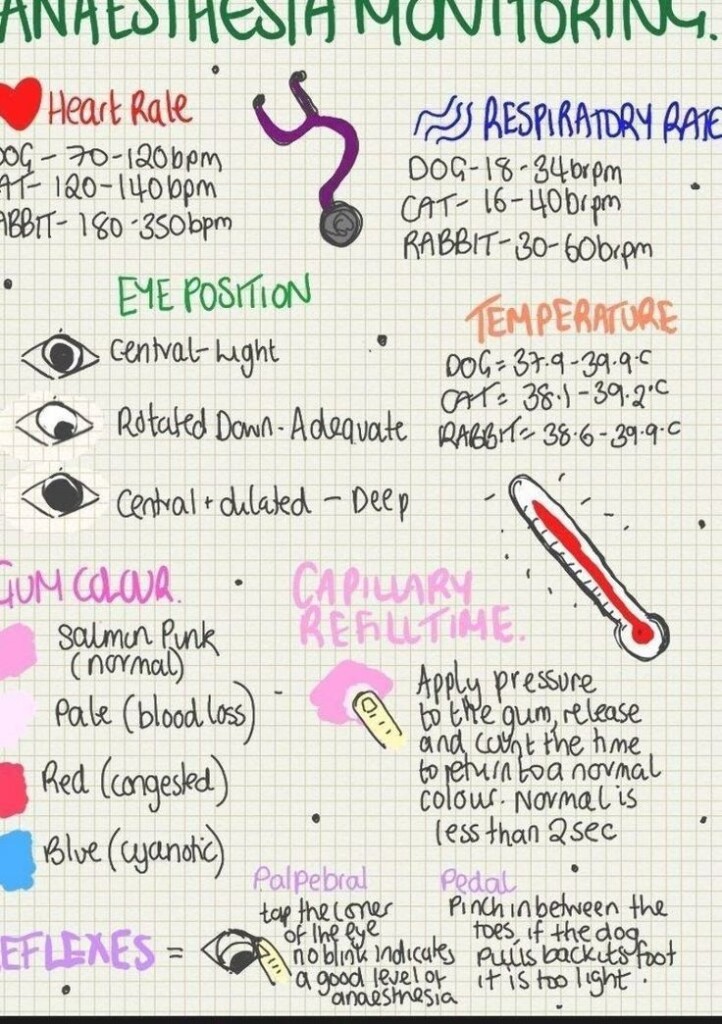 ANAESTHESIA MONITORING.
Heart Rate
DOG - 70-120bpm
AT- 120-140bpm
ABBIT- 180-350bpm
RESPIRATORY RATE
DOG-18-34brpm
CAT- 16-40brpm
RABBIT-30-60brpm
EYE POSITION
Central-Light
Rotated Down-Adequate
Central + dilated - Deep
TEMPERATURE
DOG = 37.9-39.9°C
CAT = 38.1-39.2°C
RABBIT = 38.6-39.9°C
GUM COLOUR.
Salmon Pink
(normal)
Pale (blood loss)
Red (congested)
Blue (cyanotic)
CAPILLARY
REFILL TIME.
Apply pressure
to the gum, release
and count the time
to return to a normal
colour. Normal is
less than 2sec
EFLEXES =
Palpebral
tap the corner
of the eye
no blink indicates
a good level of
anaesthesia
Pedal
Pinch in between the
toes, if the dog
pulls back its foot
it is too light.